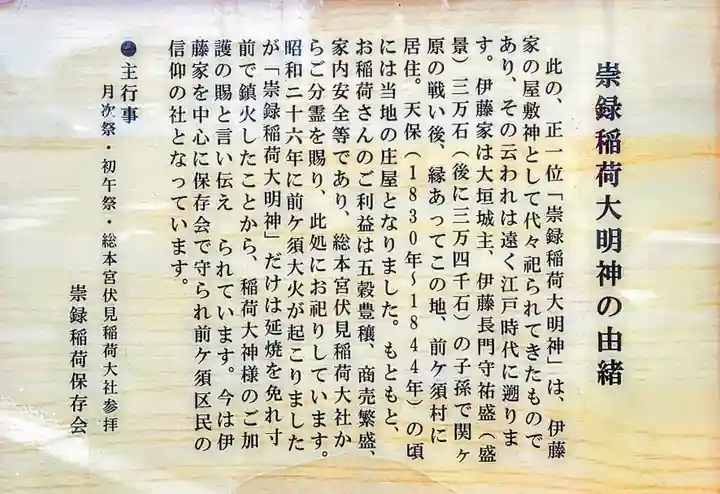 崇録稲荷大明神の由緒
此の、正一位「崇録稲荷大明神」は、伊藤
家の屋敷神として代々祀られてきたもので
あり、その云われは遠く江戸時代に遡りま
す。伊藤家は大垣城主、伊藤長門守祐盛(盛
景)三万石(後に三万四千石)の子孫で関ヶ
原の戦い後、縁あってこの地、前ケ須村に
居住。天保(1830年~1844年)の頃
には当地の庄屋となりました。もともと、
お稲荷さんのご利益は五穀豊穣、商売繁盛、
家内安全等であり、総本宮伏見稲荷大社か
らご分霊を賜り、此処にお祀りしています。
昭和二十六年に前ケ須大火が起こりました
が「崇録稲荷大明神」だけは延焼を免れ寸
前で鎮火したことから、稲荷大神様のご加
護の賜と言い伝え られています。今は伊
藤家を中心に保存会で守られ前ケ須区民の
信仰の社となっています。
●主行事
月次祭・初午祭・総本宮伏見稲荷大社参拝
崇録稲荷保存会